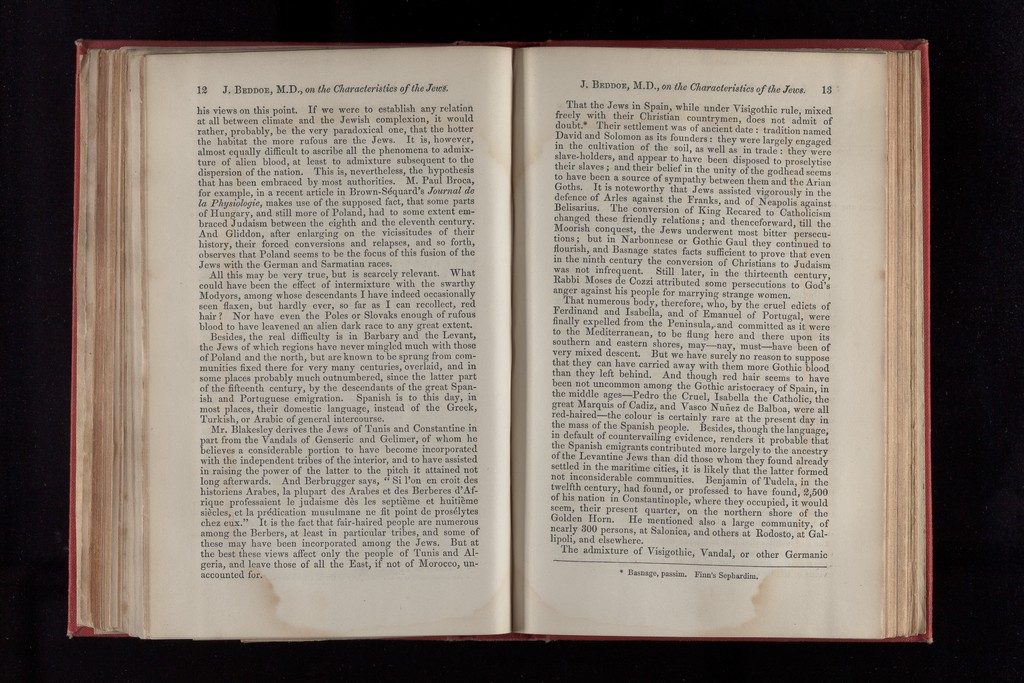 12 J. BEDDOE, M.D., on the Characteristics of the Jews.
his views on this point. If we were to establish any relation
at all between climate and the Jewish complexion, it would
rather, probably, be the very paradoxical one, that the hotter
the habitat the more rufous are the Jews. It is, however,
almost equally difficult to ascribe all the phenomena to admix-
ture of alien blood, at least to admixture subsequent to the
dispersion of the nation. This is, nevertheless, the hypothesis
that has been embraced by most authorities. M. Paul Broca,
for example, in a recent article in Brown-Séquard's Journal de
la Physiologie, makes use of the supposed fact, that some parts
of Hungary, and still more of Poland, had to some extent em-
braced Judaism between the eighth and the eleventh century.
And Gliddon, after enlarging on the vicissitudes of their
history, their forced conversions and relapses, and so forth,
observes that Poland seems to be the focus of this fusion of the
Jews with the German and Sarmatian races.
All this may be very true, but is scarcely relevant. What
could have been the effect of intermixture with the swarthy
Modyors, among whose descendants I have indeed occasionally
seen flaxen, but hardly ever, so far as I can recollect, red
hair? Nor have even the Poles or Slovaks enough of rufous
blood to have leavened an alien dark race to any great extent.
Besides, the real difficulty is in Barbary and the Levant,
the Jews of which regions have never mingled much with those
of Poland and the north, but are known to be sprung from com-
munities fixed there for very many centuries, overlaid, and in
some places probably much outnumbered, since the latter part
of the fifteenth century, by the descendants of the great Span-
ish and Portuguese emigration. Spanish is to this day, in
most places, their domestic language, instead of the Greek,
Turkish, or Arabic of general intercourse.
Mr. Blakesley derives the Jews of Tunis and Constantine in
part from the Vandals of Genseric and Gelimer, of whom he
believes a considerable portion to have become incorporated
with the independent tribes of the interior, and to have assisted
in raising the power of the latter to the pitch it attained not
long afterwards. And Berbrugger says, "Si l'on en croit des
historiens Arabes, la plupart des Arabes et des Berberes d'Af-
rique professaient le judaïsme dès les septième et huitième
siècles, et la prédication musulmane ne fit point de prosélytes
chez eux." It is the fact that fair-haired people are numerous
among the Berbers, at least in particular tribes, and some of
these may have been incorporated among the Jews. But at
the best these views affect only the people of Tunis and Al-
geria, and leave those of all the East, if not of Morocco, un-
accounted for.
J. BEDDOE, M.D., on the Characteristics of the Jews. 13
That the Jews in Spain, while under Visigothic rule, mixed
freely with their Christian countrymen, does not admit of
doubt.* Their settlement was of ancient date: tradition named
David and Solomon as its founders: they were largely engaged
in the cultivation of the soil, as well as in trade: they were
slave-holders, and appear to have been disposed to proselytise
their slaves; and their belief in the unity of the godhead seems
to have been a source of sympathy between them and the Arian
Goths. It is noteworthy that Jews assisted vigorously in the
defence of Arles against the Franks, and of Neapolis against
Belisarius. The conversion of King Recared to Catholicism
changed these friendly relations; and thenceforward, till the
Moorish conquest, the Jews underwent most bitter persecu-
tions; but in Narbonnese or Gothic Gaul they continued to
flourish, and Basnage states facts sufficient to prove that even
in the ninth century the conversion of Christians to Judaism
was not infrequent. Still later, in the thirteenth century,
Rabbi Moses de Cozzi attributed some persecutions to God's
anger against his people for marrying strange women.
That numerous body, therefore, who, by the cruel edicts of
Ferdinand and Isabella, and of Emanuel of Portugal, were
finally expelled from the Peninsula, and committed as it were
to the Mediterranean, to be flung here and there upon its
southern and eastern shores, may—nay, must—have been of
very mixed descent. But we have surely no reason to suppose
that they can have carried away with them more Gothic blood
than they left behind. And though red hair seems to have
been not uncommon among the Gothic aristocracy of Spain, in
the middle ages—Pedro the Cruel, Isabella the Catholic, the
great Marquis of Cadiz, and Vasco Nuñez de Balboa, were all
red-haired—the colour is certainly rare at the present day in
the mass of the Spanish people. Besides, though the language,
in default of countervailing evidence, renders it probable that
the Spanish emigrants contributed more largely to the ancestry
of the Levantine Jews than did those whom they found already
settled in the maritime cities, it is likely that the latter formed
not inconsiderable communities. Benjamin of Tudela, in the
twelfth century, had found, or professed to have found, 2,500
of his nation in Constantinople, where they occupied, it would
seem, their present quarter, on the northern shore of the
Golden Horn. He mentioned also a large community, of
nearly 300 persons, at Salonica, and others at Rodosto, at Gal-
lipoli, and elsewhere.
The admixture of Visigothic, Vandal, or other Germanic
* Basnage, passim. Finn's Sephardim.